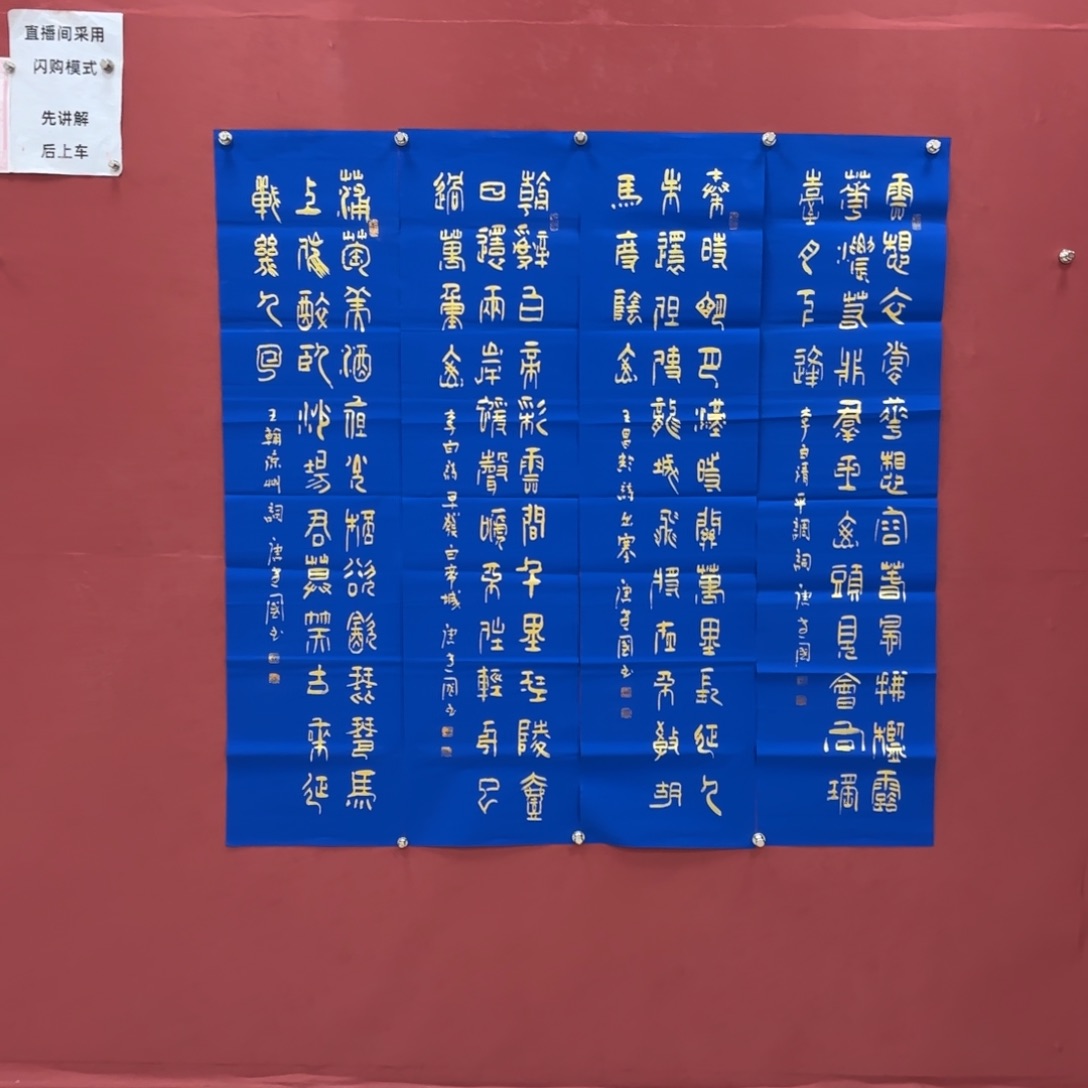 直播间采用
闪购模式
先讲解
后上车
雲想衣裳華想容春風拂檻露
華濃若非羣玉山頭見會向瑤
臺月下逢 李白清平調詞
秦時明月漢時關萬里長征人
未還但使龍城飛將在不教胡
馬度陰山 王昌齡詩出塞
朝辭白帝彩雲間千里江陵壹
日還兩岸猿聲啼不住輕舟已
過萬重山 李白詩早發白帝城
蒲萄美酒夜光杯欲飲琵琶馬
上催醉臥沙場君莫笑古來征
戰幾人回 王翰涼州詞